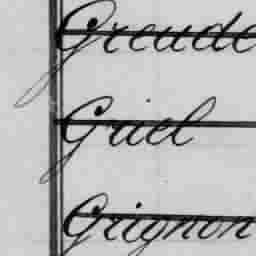 Greude
Griel
Grignon